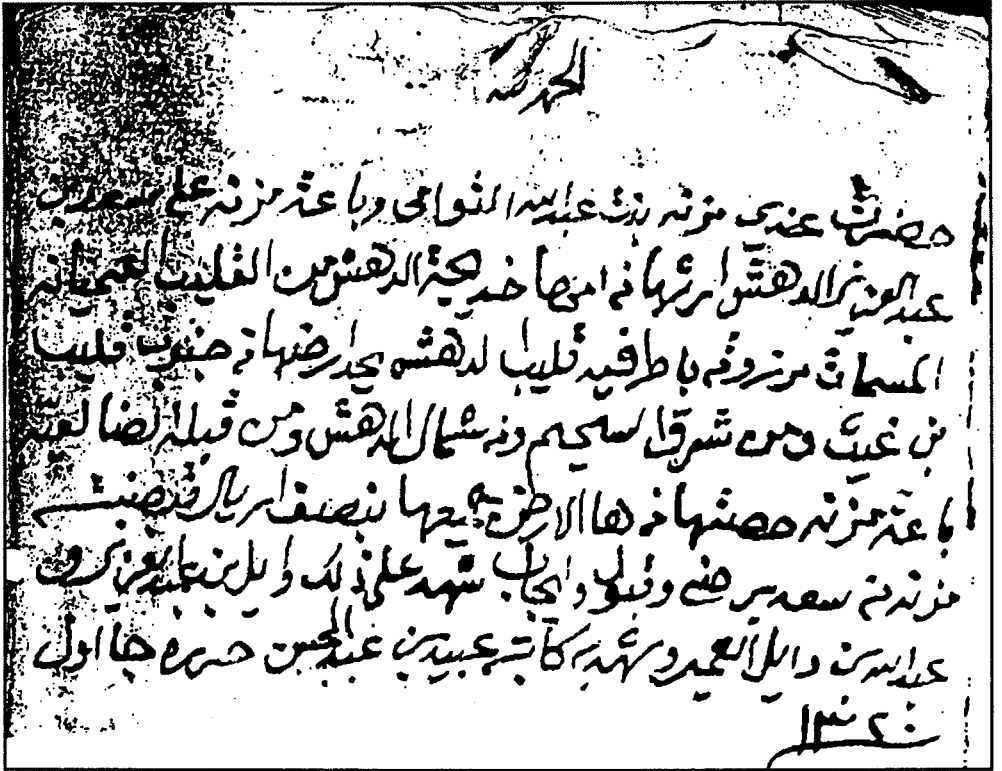 الحمد لله
حضرت عندي مزنه بنت عبدالله التوامي وباعت مزنه على سعد بن
عبدالعزيز الدهش ارثها من امها خديجة الدهش من القليب العميانه
المسمات مرزوقه باطرفيه قليب الدهش يحد ارضها من جنوب قليب
بن غيث ومن شرق السحيم ومن شمال الدهش ومن قبلة
باعت مزنه حصتها من ها الارض جميعها بنصف اريال وقبضت
مزنه من سعد برضى وقبول وايجاب شهد على ذلك وايل بن عبدالعزيز و
عبدالله بن وايل العمير وشهد به كاتبه عبيد بن عبدالمحسن حرره جا اول
١٣٢٠